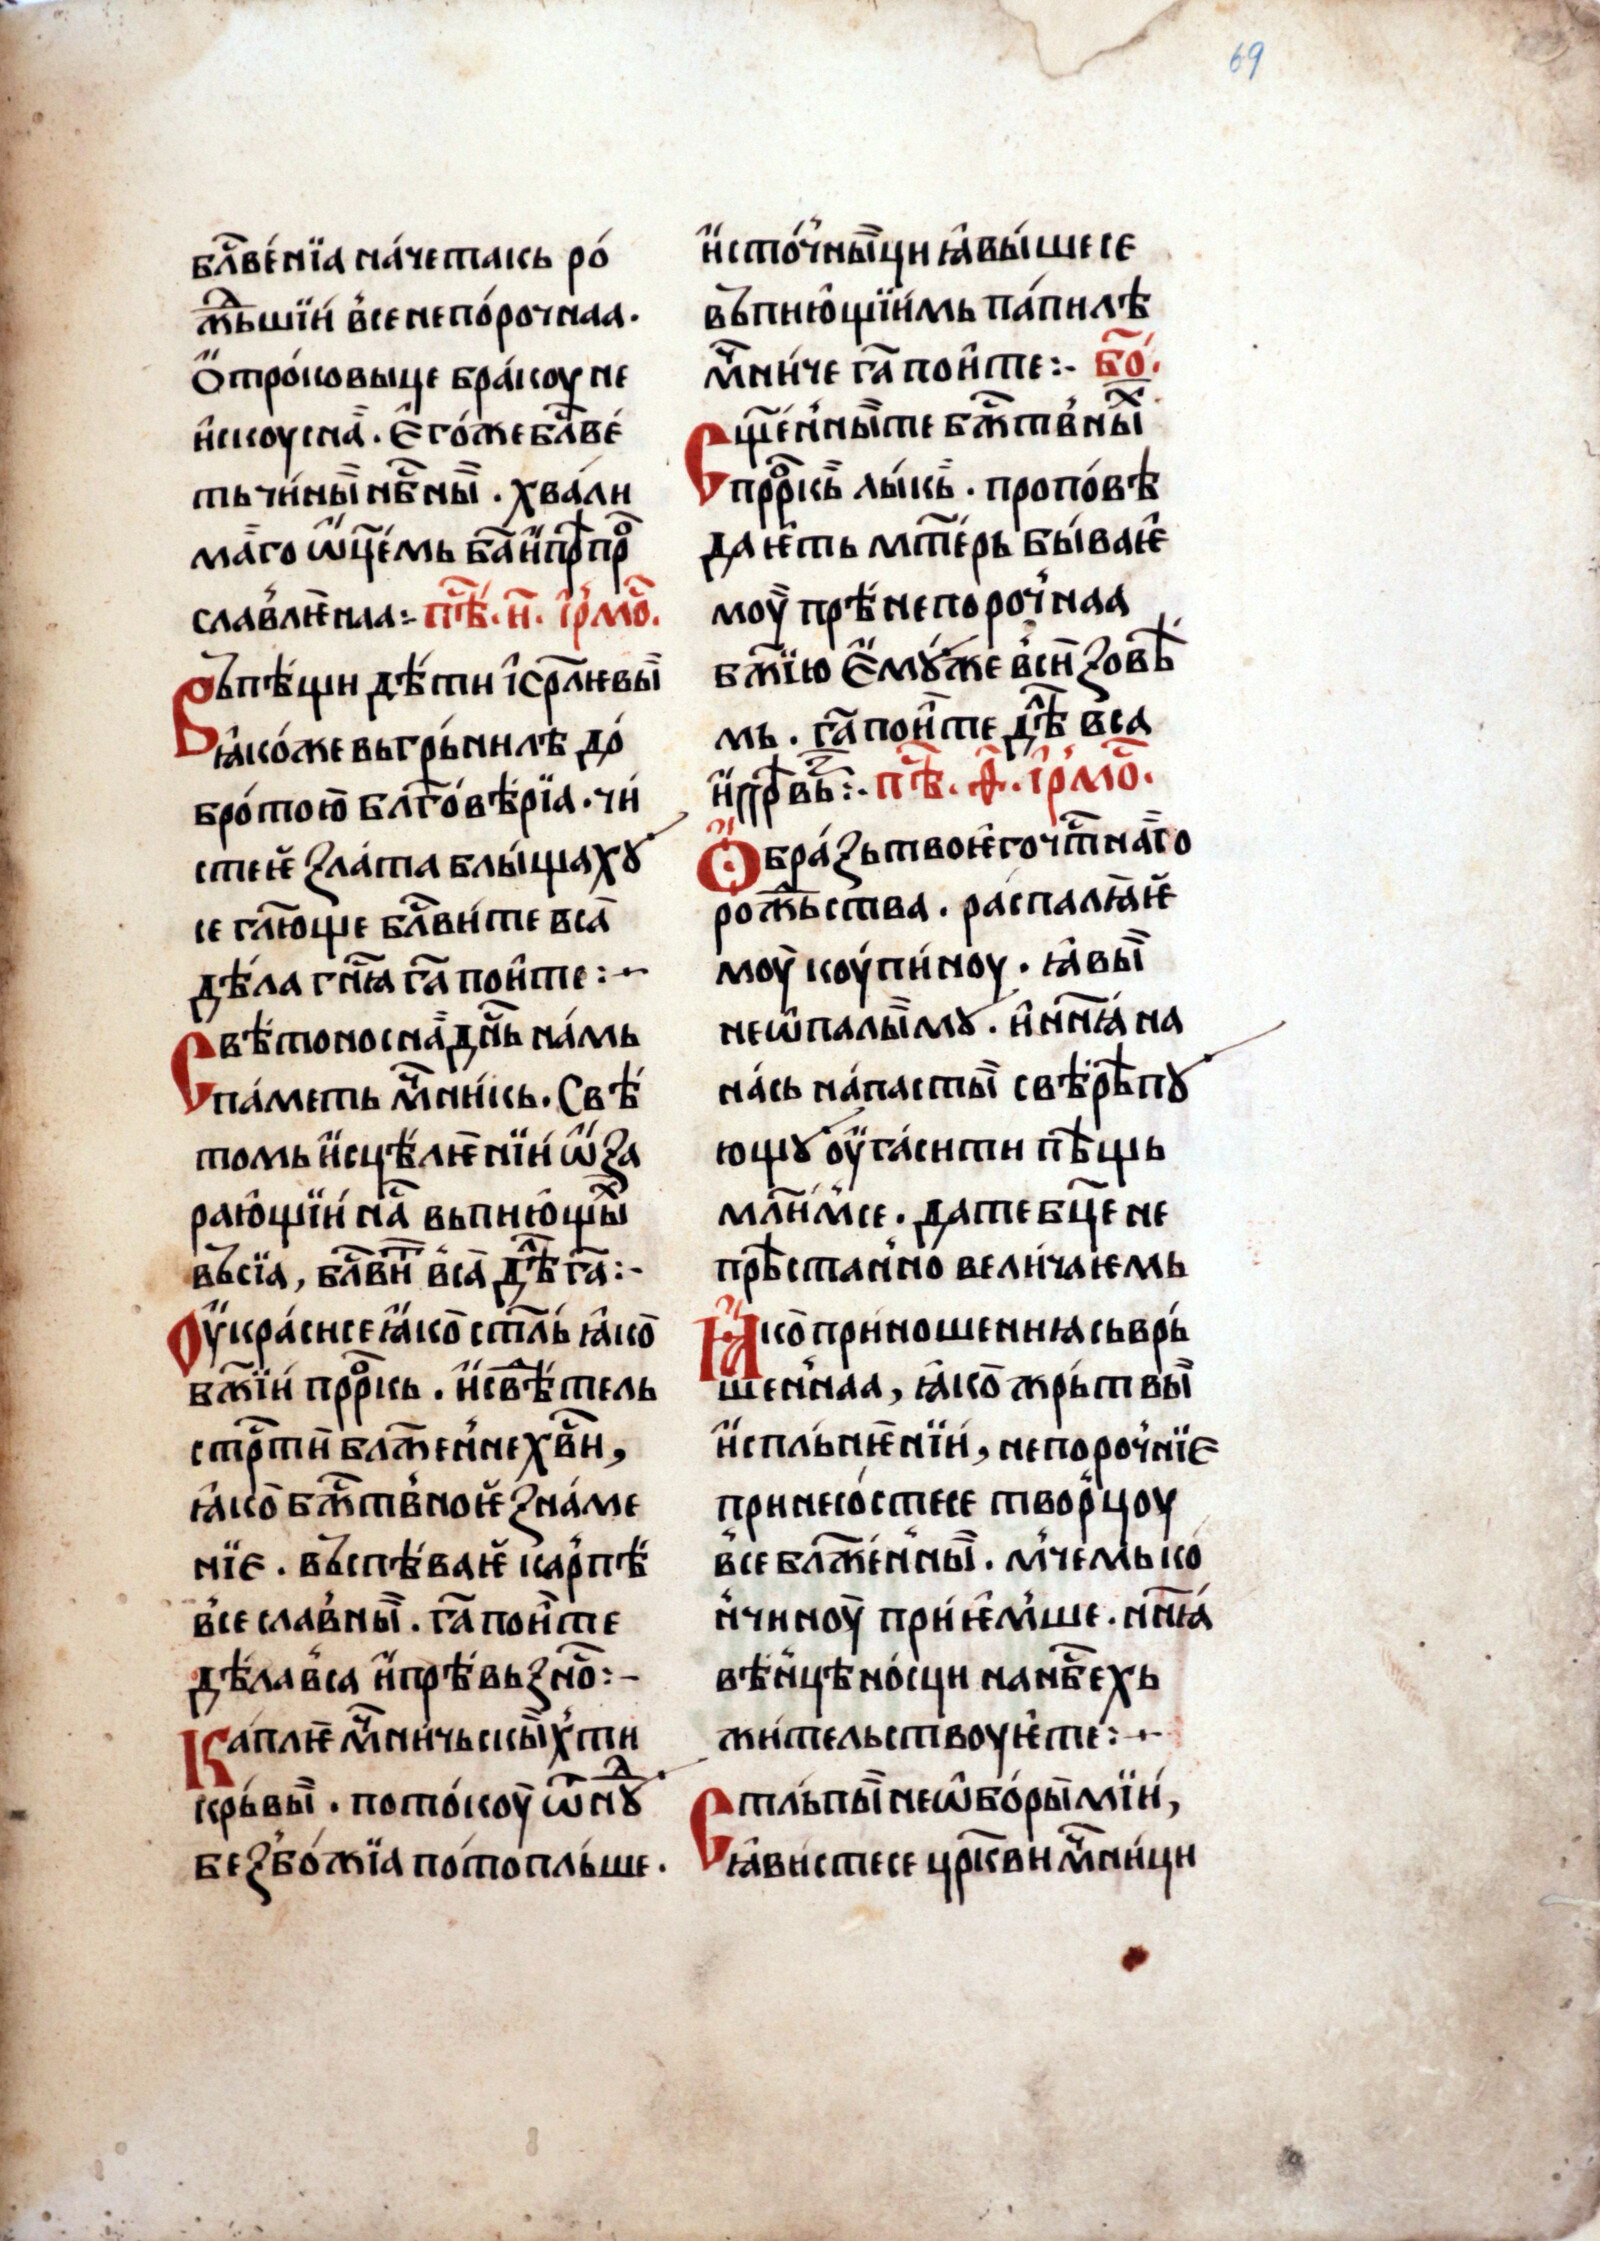 69
бл҃ве́нїа на́четакь ро́
ж҃ьшїи́ в҆се непо́рочнаа.
Ѻ҆тро́ковыце бра́коу не
и҆скоусна̄. Є҆го́же бл҃ве́
ть чи́ны̄ нб҃ны̄. хва́ли
ма̄го ѿц҃е́мь ба҃ и҆ пр҃ѣ про҃
слав҆лѥ́наа:- пѣ҃. н҃. і҆рмо҃.
Въ пѣ́щи дѣ́ти і҆сра҃лѥвы̄
ꙗ҆ко́же вь гръ́нилѣ до́
бро́тою̄ бл҃го́вѣ́рїа. чи́
стеѥ҆ ꙁла́та блы́щахꙋ
се гл҃юще бл҃ви́те вса̄
дѣ́ла гн҃ꙗ га҃ по́ите:-
Свѣ́тоносна̄ дн҃ь на́мь
па́меть мч҃ни́кь. Свѣ́
томь и҆сцѣ́лѥ́нїи́ ѡ҆ꙁа
раю҆щїи́ на҃ вьпию҆щы̄х
въсїа, бл҃ви́т в҆са̄ дѣ̄л га҃:-
Оу҆кра́си се ꙗ҆ко̄ стль́ ꙗ҆ко̄
бж҃їи́ пррⷪ҇кь. и҆ свѣ̄тель
стрⷭ҇тїӣ блж҃ен҆не хв҃и,
ꙗ҆ко̄ бжⷭ҇тв҆ноѥ҆ ꙁна́ме
нїе. въспѣ́ваѥ҆ кар҆пѣ́
в҆сеслав҆ны̄. га҃ пои҆те
дѣ́ла в҆са и҆ прѣ́вьꙁно̄:-
Каплѥ̄ мч҃ни́чьскы̄х҆ ти
кръ́вы̄. пото́коӯ ѿ лⷣꙋ
беꙁбо́жїа пото́пльше.
и҆сто́ч҆ны̄ци ꙗ҆вы́ше се
въпию҆щїи҆мь па́пилѣ
мч҃ни́че га҃ пои҆те:- бо҃.
Сщ҃ен҆ны̄те бжⷭ҇тв҆ны̄х
пррⷪ҇кь̄ лы́кь̄. пропо́вѣ
даѥ́ть мт҃е́рь бы́ваѥ҆
моӯ прѣ́непороч҆наа
бж҃їю Є҆мꙋ́же в҆сӣ ꙁовѣ̄
мь. га҃ пои҆те дѣ̄л в҆са
и҆ прⷣѣвьꙁ:- пѣ҃. ѳ҃. і҆рмо҃.
Ѻ҆бра́ꙁь твоѥ҆го чⷭ҇тна̄го
рожⷣьства. распалꙗ̄ѥ҆
моӯ коу́пи́ноу. ꙗ҆вы̄
неѡ҆палы̄мꙋ. и҆ нн҃ꙗ на
на́сь на́пасты̄ свѣ́рѣ̄пꙋ
ющꙋ оу҆га́сити пѣ̄щь
мл҃и́м҆се. да те бц҃е не
прѣ̄стан҆но́ вели́чаѥмь
Ꙗ҆ко̄ прино́шенниꙗ сьврь́
шен҆наа, ꙗ҆ко̄ жрь́твы̄
и҆спль́нѥ̄нїи́, непороч҆нїе
принесо́стесе твор҆цоу
в҆се блж҃ен҆ны̄. мч҆емь ко́
н҆чиноӯ прїѥ҆м҆ше. нн҃ꙗ
вѣ́н҆цѣно́сци на нб҃ехь
жи́тельствоуѥ҆те:-
Стль́пы̄ неѡ҆бо́ры̄мїи́,
ꙗ҆ви́стесе црⷦ҇ви мч҃ни́ци